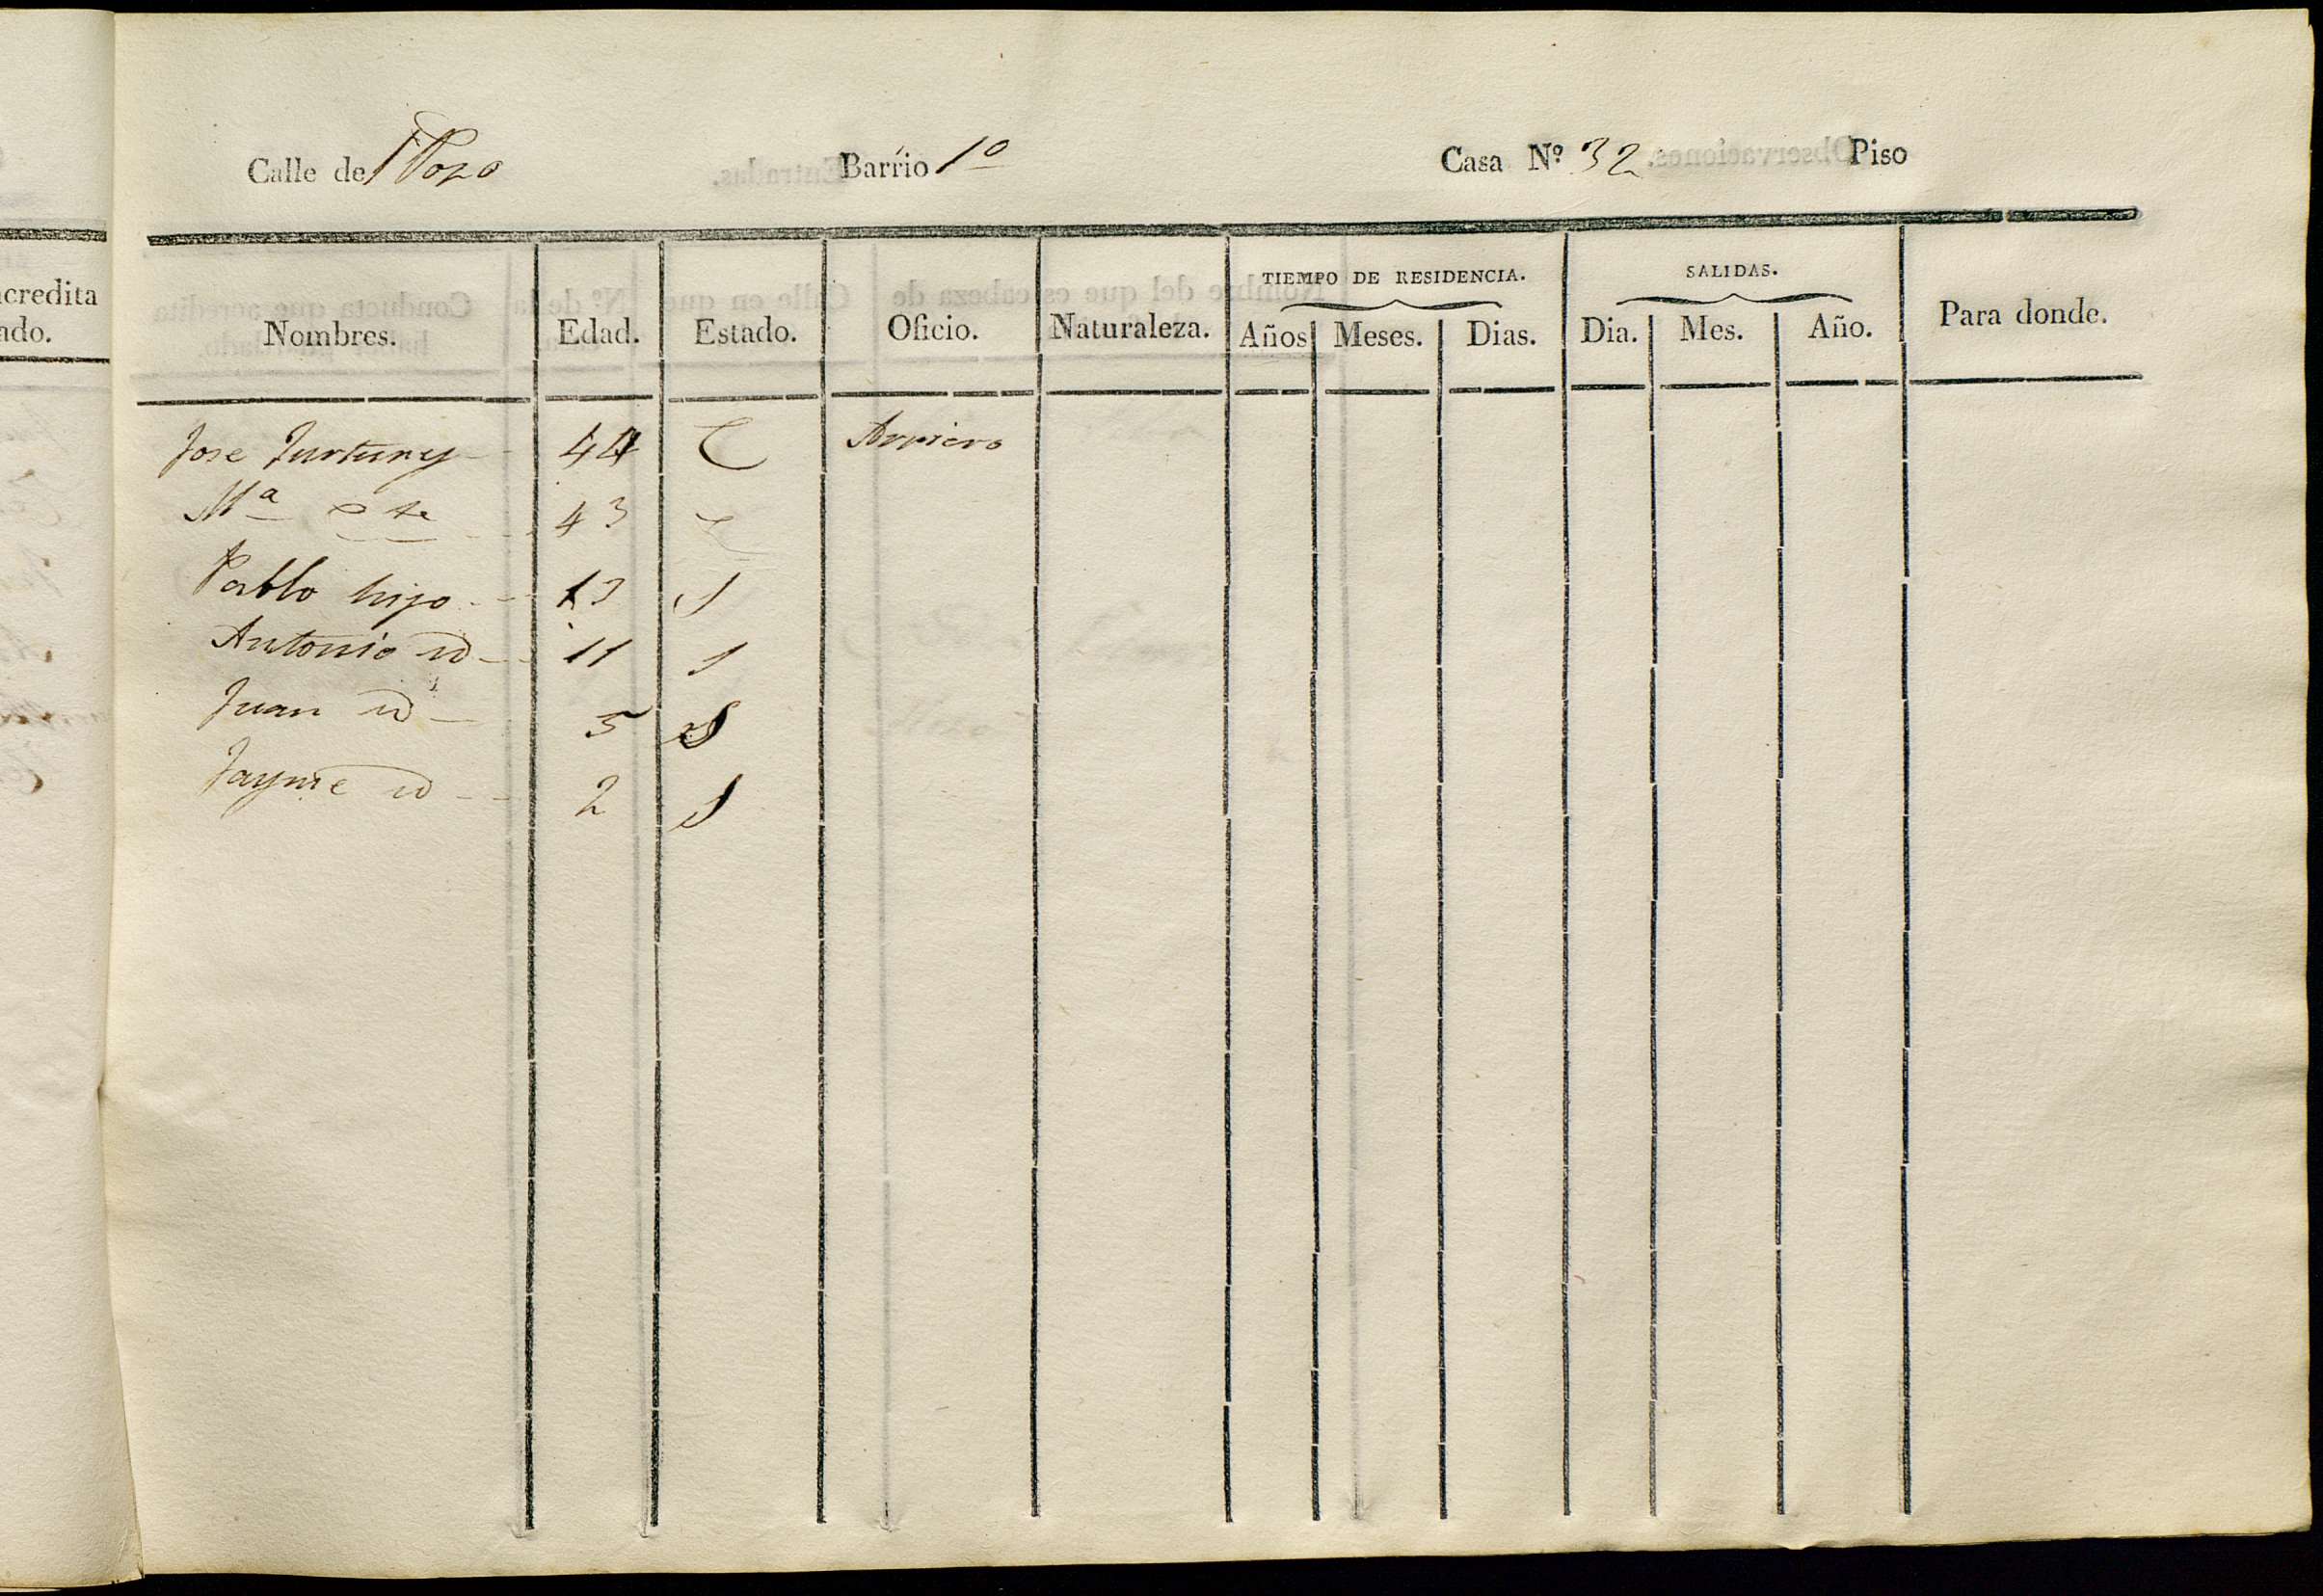 Calle de Pozo Barrio 1º Casa Nº 32 Piso
acredita
ado.
TIEMPO DE RESIDENCIA. SALIDAS.
Nombres. Edad. Estado. Oficio. Naturaleza. Años Meses. Dias. Dia. Mes. Año. Para donde.
Jose Furtuny 44 C Arriero
Mª 43 C
Pablo hijo 13 S
Antonio id 11 S
Juan id 5 S
Jayme id 2 S